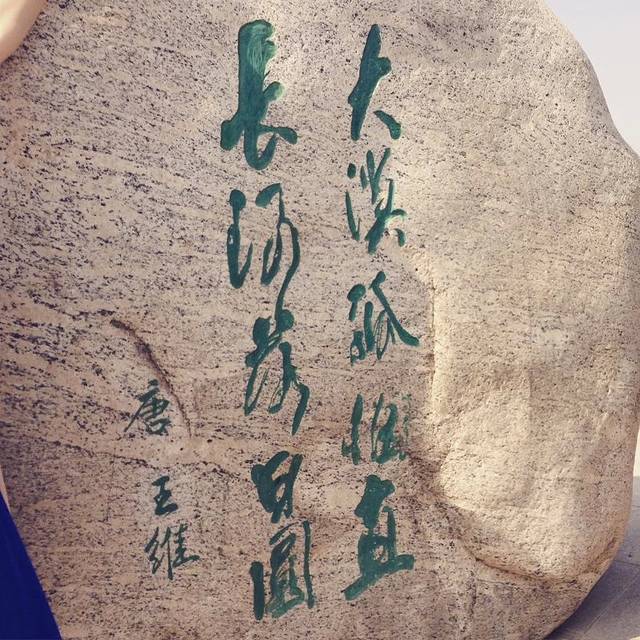 大漠孤烟直
長河落日圓
唐 王維